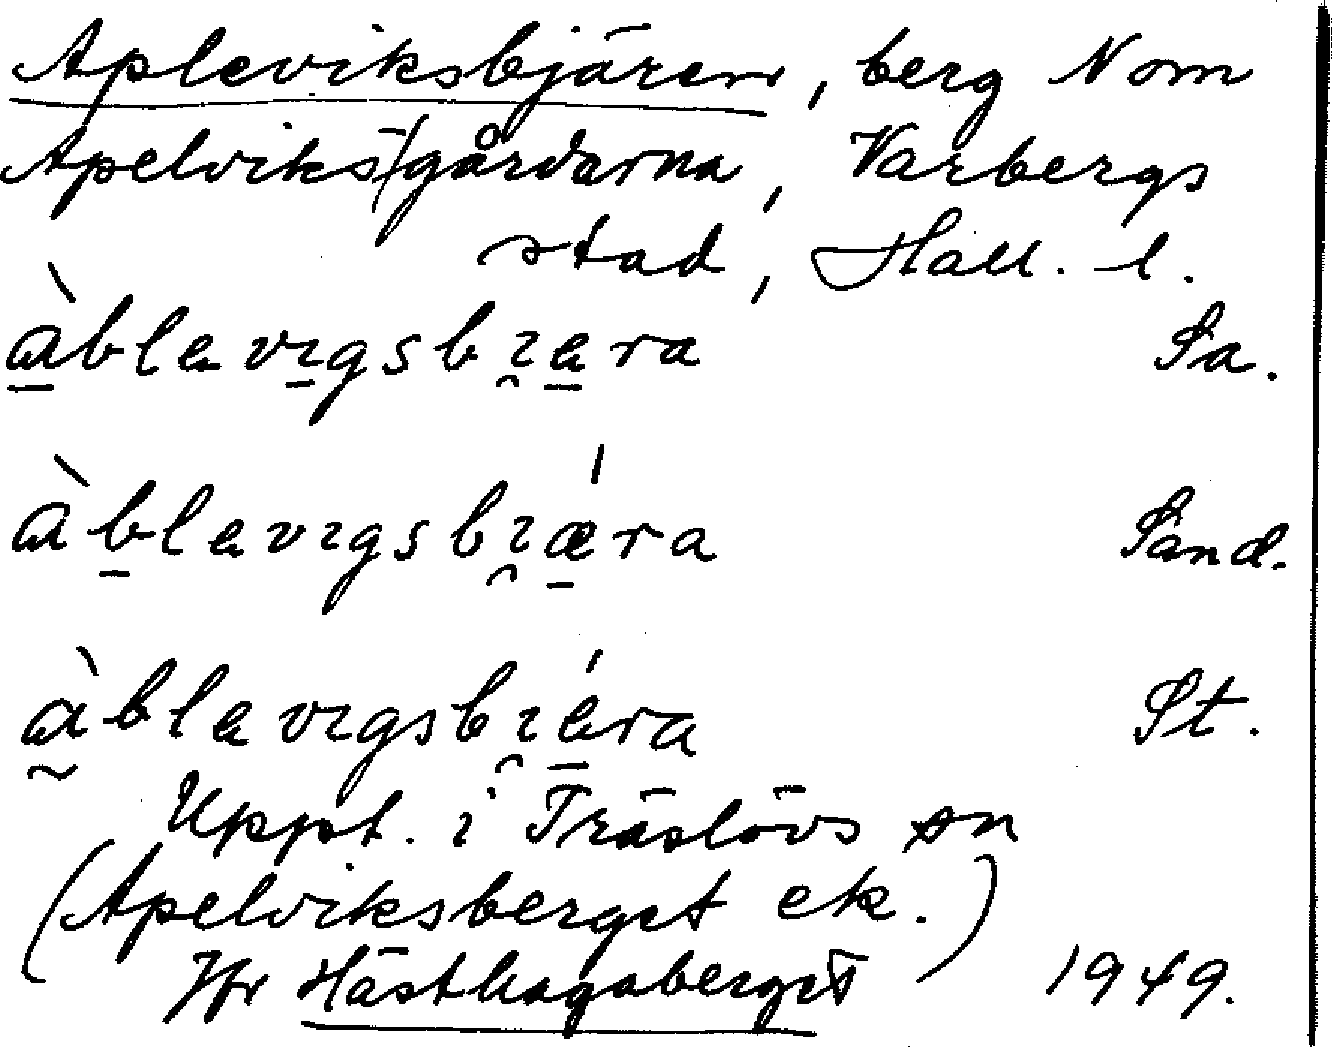 Apleviksbjären, berg N om
Apelviks/gårdarna, Varbergs
stad, Hall. l.
àblavıgsbı̯ara Sa.
àblavıgsbı̯ǽra Sand.
àblavıgsbı̯ára St.
Uppt. i Träslövs sn
(Apelviksberget ek.)
Jfr Hästhagaberget 1949.